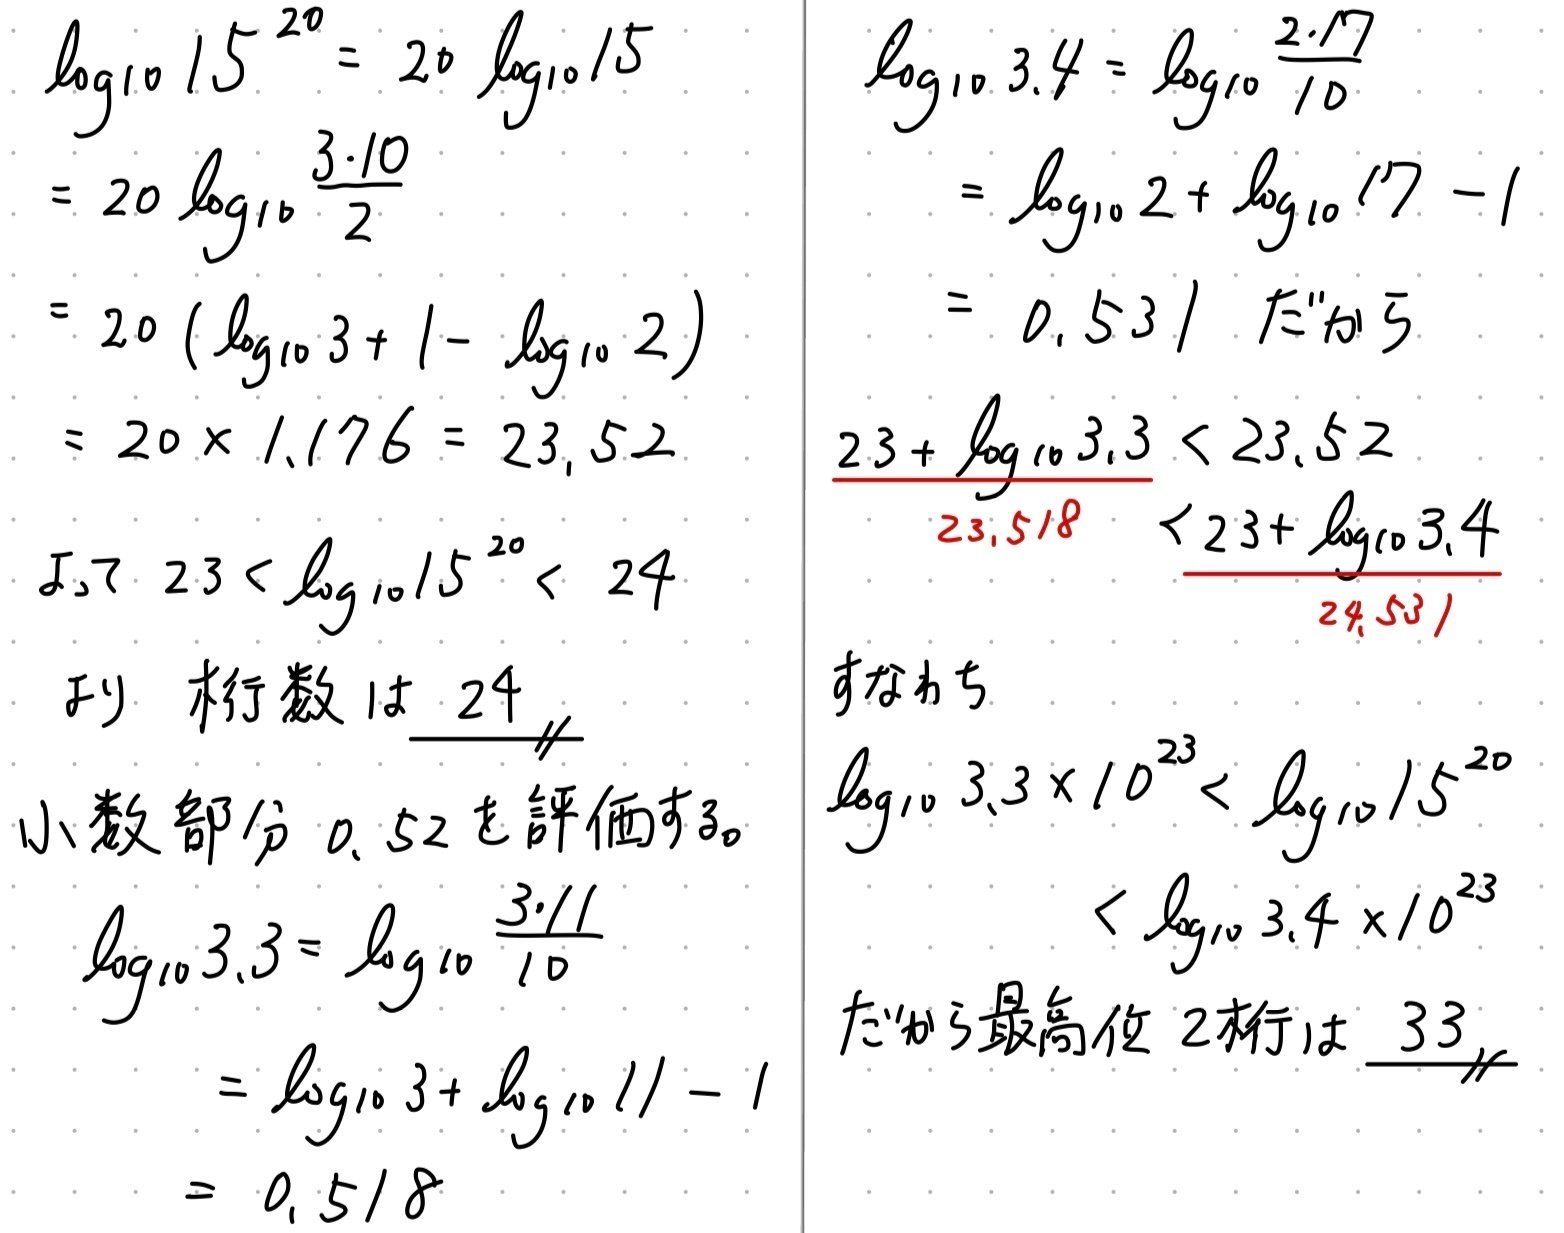 log₁₀ 15²⁰ = 20 log₁₀ 15
= 20 log₁₀ 3·10/2
= 20 (log₁₀ 3 + 1 - log₁₀ 2)
= 20 × 1.176 = 23.52
よって 23 < log₁₀ 15²⁰ < 24
より 桁数は 24
小数部分 0.52 を評価する。
log₁₀ 3.3 = log₁₀ 3·11/10
= log₁₀ 3 + log₁₀ 11 - 1
= 0.518
log₁₀ 3.4 = log₁₀ 2·17/10
= log₁₀ 2 + log₁₀ 17 - 1
= 0.531 だから
23 + log₁₀ 3.3 < 23.52
23.518
< 23 + log₁₀ 3.4
24.531
すなわち
log₁₀ 3.3 × 10²³ < log₁₀ 15²⁰
< log₁₀ 3.4 × 10²³
だから最高位 2桁は 33